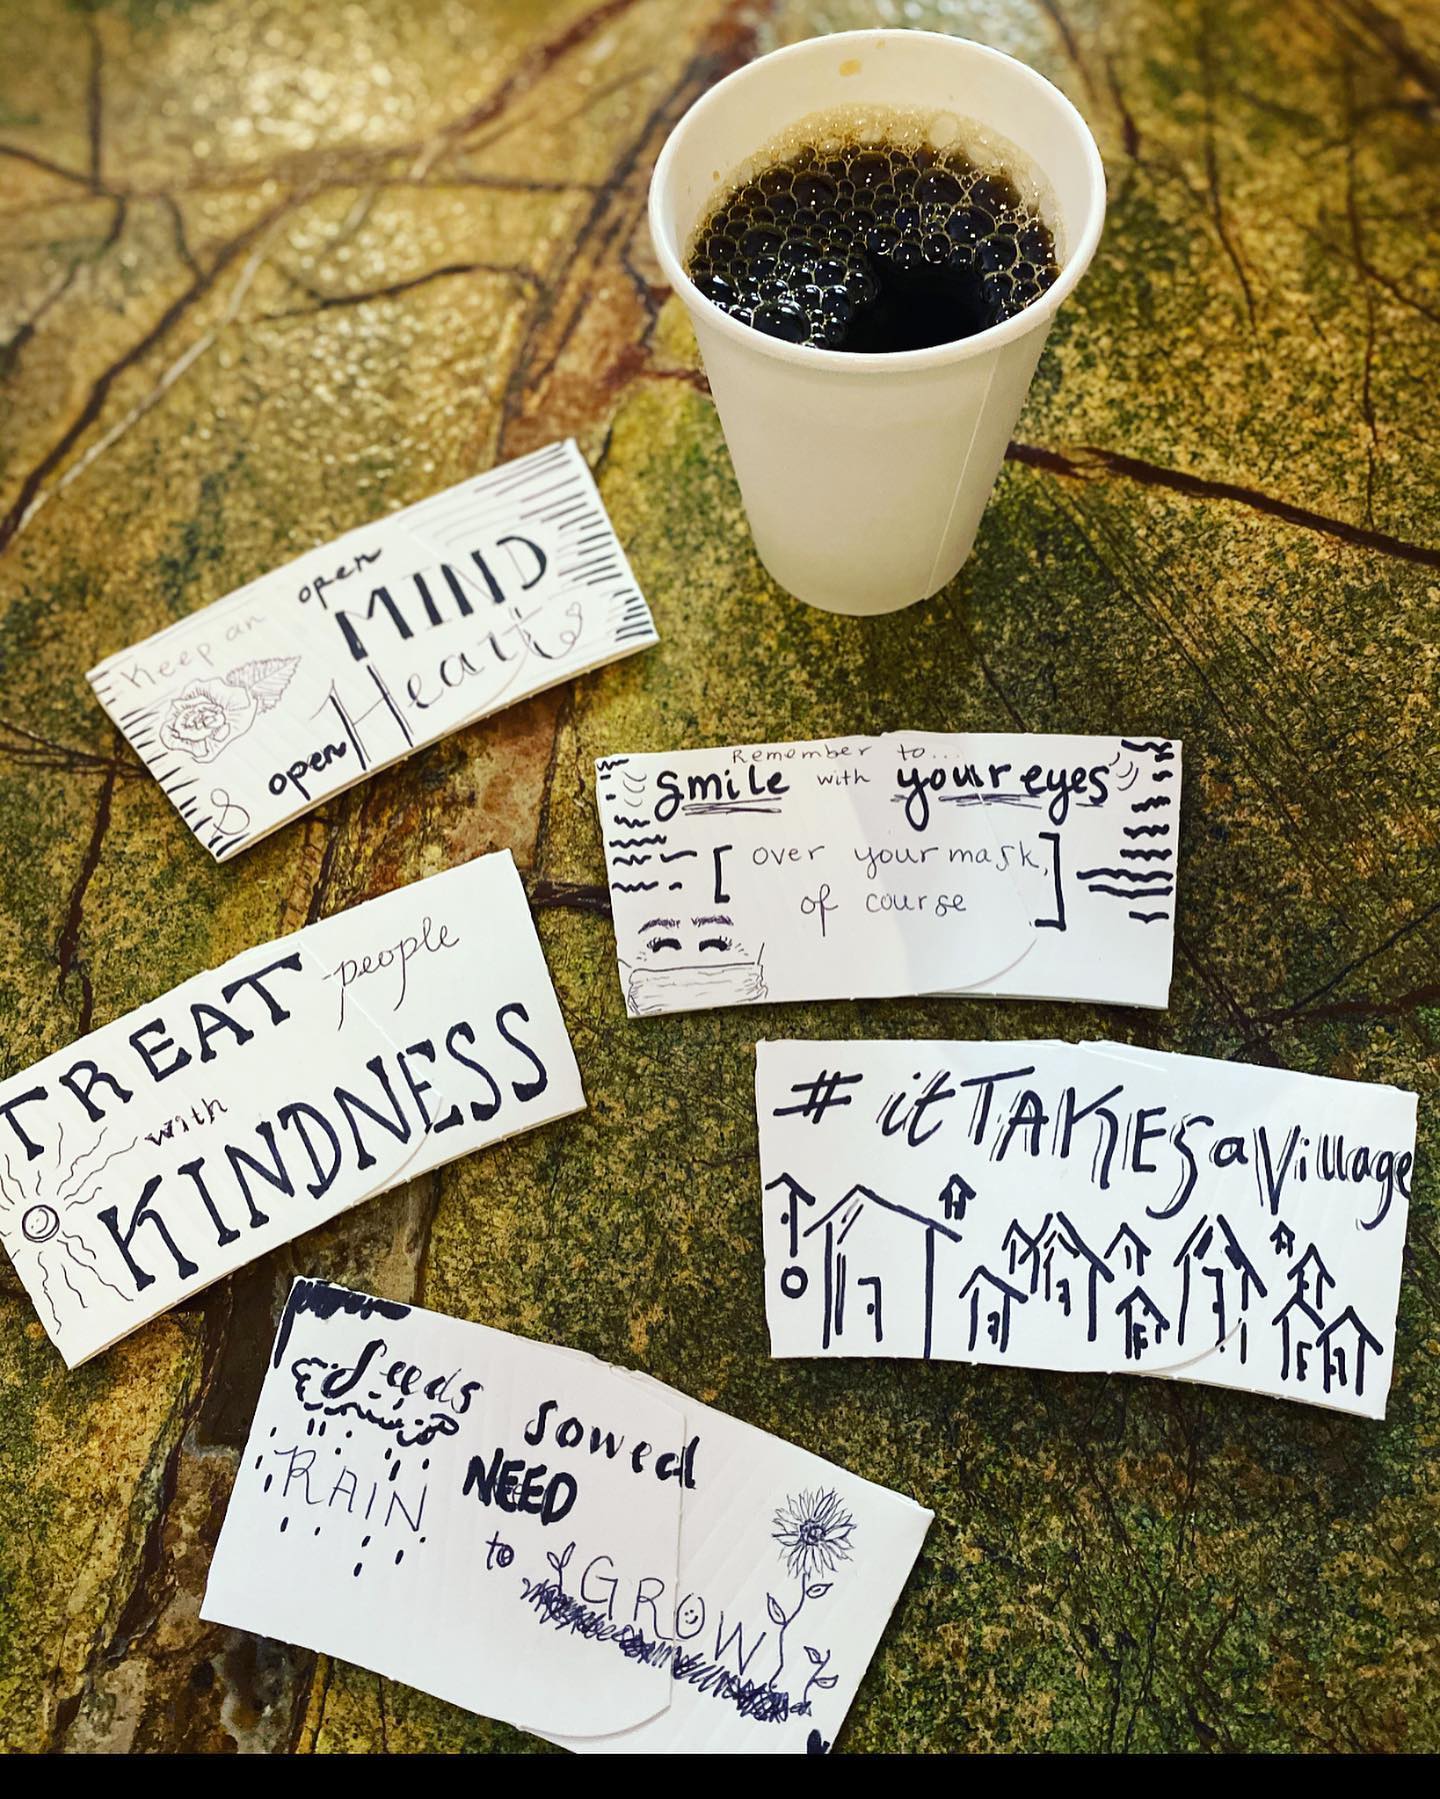 Keep an open
MIND
& open Heart
Remember to...
smile with your eyes
[over your mask,
of course]
TREAT people
with
KINDNESS
#itTAKESaVillage
Seeds sowed
NEED
RAIN
to GROW